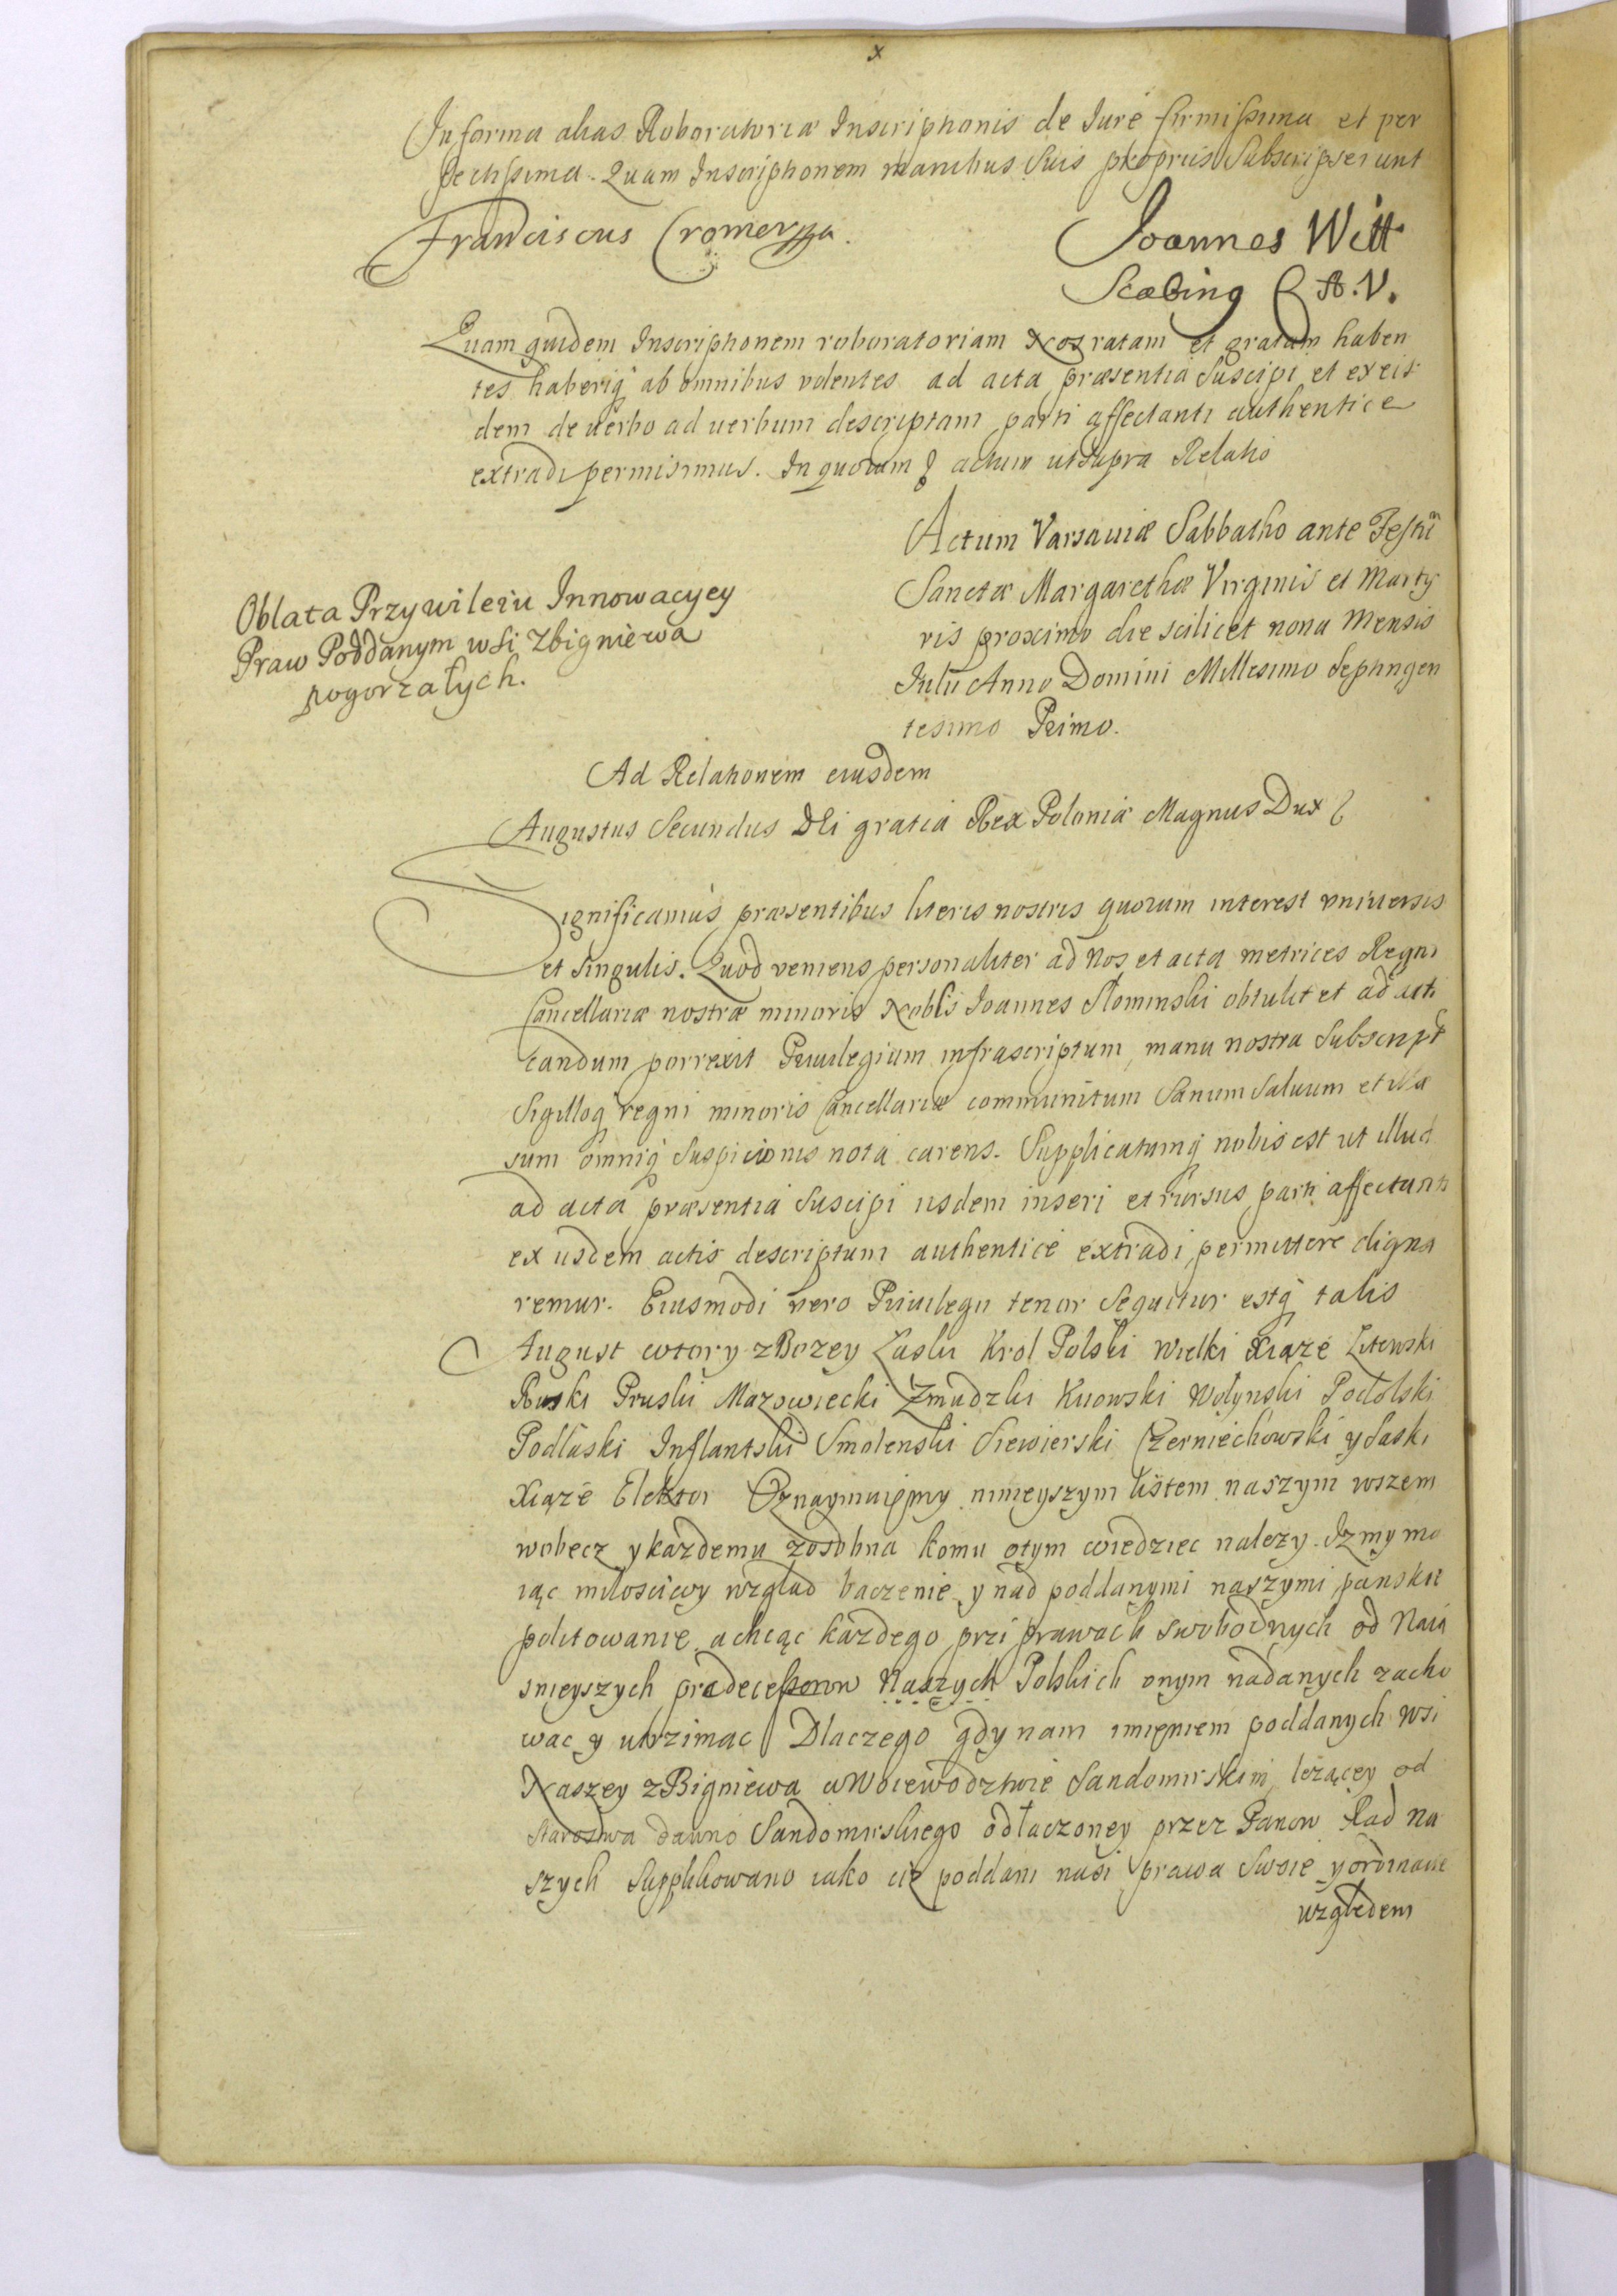 x
In forma alias Roboratoriæ Inscriptionis de Iure firmissima et per
fectissima. Quam Inscriptionem manibus Suis proprijs Subscripserunt
Franciscus Cromer
Joannes Witt
Scabinq S A. V.
Quam quidem Inscriptionem roboratoriam Nos ratam et gratam haben
tes haberiq ab omnibus volentes ad acta præsentia Suscipi et ex eis
dem de verbo ad verbum descriptam parti affectanti authentice
extradi permisimus. In quorum actum ut Supra Relatio
Actum Varsaviæ Sabbatho ante Festũ
Sanctæ Margarethæ Virginis et Marty
ris proximo die scilicet nona Mensis
Julii Anno Domini Millesimo Septingen
tesimo Primo.
Oblata Przywileiu Innowacyey
Praw Poddanym wsi Zbigniewa
pogorzałych.
Ad Relationem eiusdem
Augustus Secundus DEi gratia Rex Poloniæ Magnus Dux
Significamus præsentibus literis nostris quorum interest vniuersis
et Singulis. Quod veniens personaliter ad Nos et acta metrices Regni
Cancellariæ nostræ minoris Noblis Joannes Słominski obtulit et ad acti
candum porrexit Priuilegium infrascriptum manu nostra Subscript
Sigilloq regni minoris Cancellariæ communitum Sanum Saluum et illæ
sum omniq Suspicionis nota carens. Supplicatumq nobis est ut illud
ad acta præsentia Suscipi iisdem inseri et rursus parti affectanti
ex iisdem actis descriptum authentice extradi permittere digna
remur. Eiusmodi vero Priuilegii tenor Sequitur estq talis
August wtory z Bozey Łaski Krol Polski Wielki Xiąze Litewski
Ruski Pruski Mazowiecki Zmudzki Kiiowski Wołynski Podolski
Podlaski Inflantski Smolenski Siewierski Czerniechowski y Saski
Xiąże Elektor Oznaymuiemy ninieyszym listem naszym wszem
wobecz y kazdemu zosobna komu otym wiedziec nalezy. Iz my ma
iąc miłosciwy wzgląd baczenie y nad poddanymi naszymi panskie
politowanie a chcąc kazdego przi prawach swobodnych od Naia
snieyszych predecessorow Naszych Polskich onym nadanych zacho
wac y utrzimac Dlaczego gdy nam imieniem poddanych wsi
Naszey zBigniewa w Woiewodztwie Sandomirskim, leżącey od
Starostwa dawno Sandomirskiego odłaczoney przez Panow Rad Na
szych Supplikowano iako ciż poddani nasi prawa Swoie y ordinacie
względem